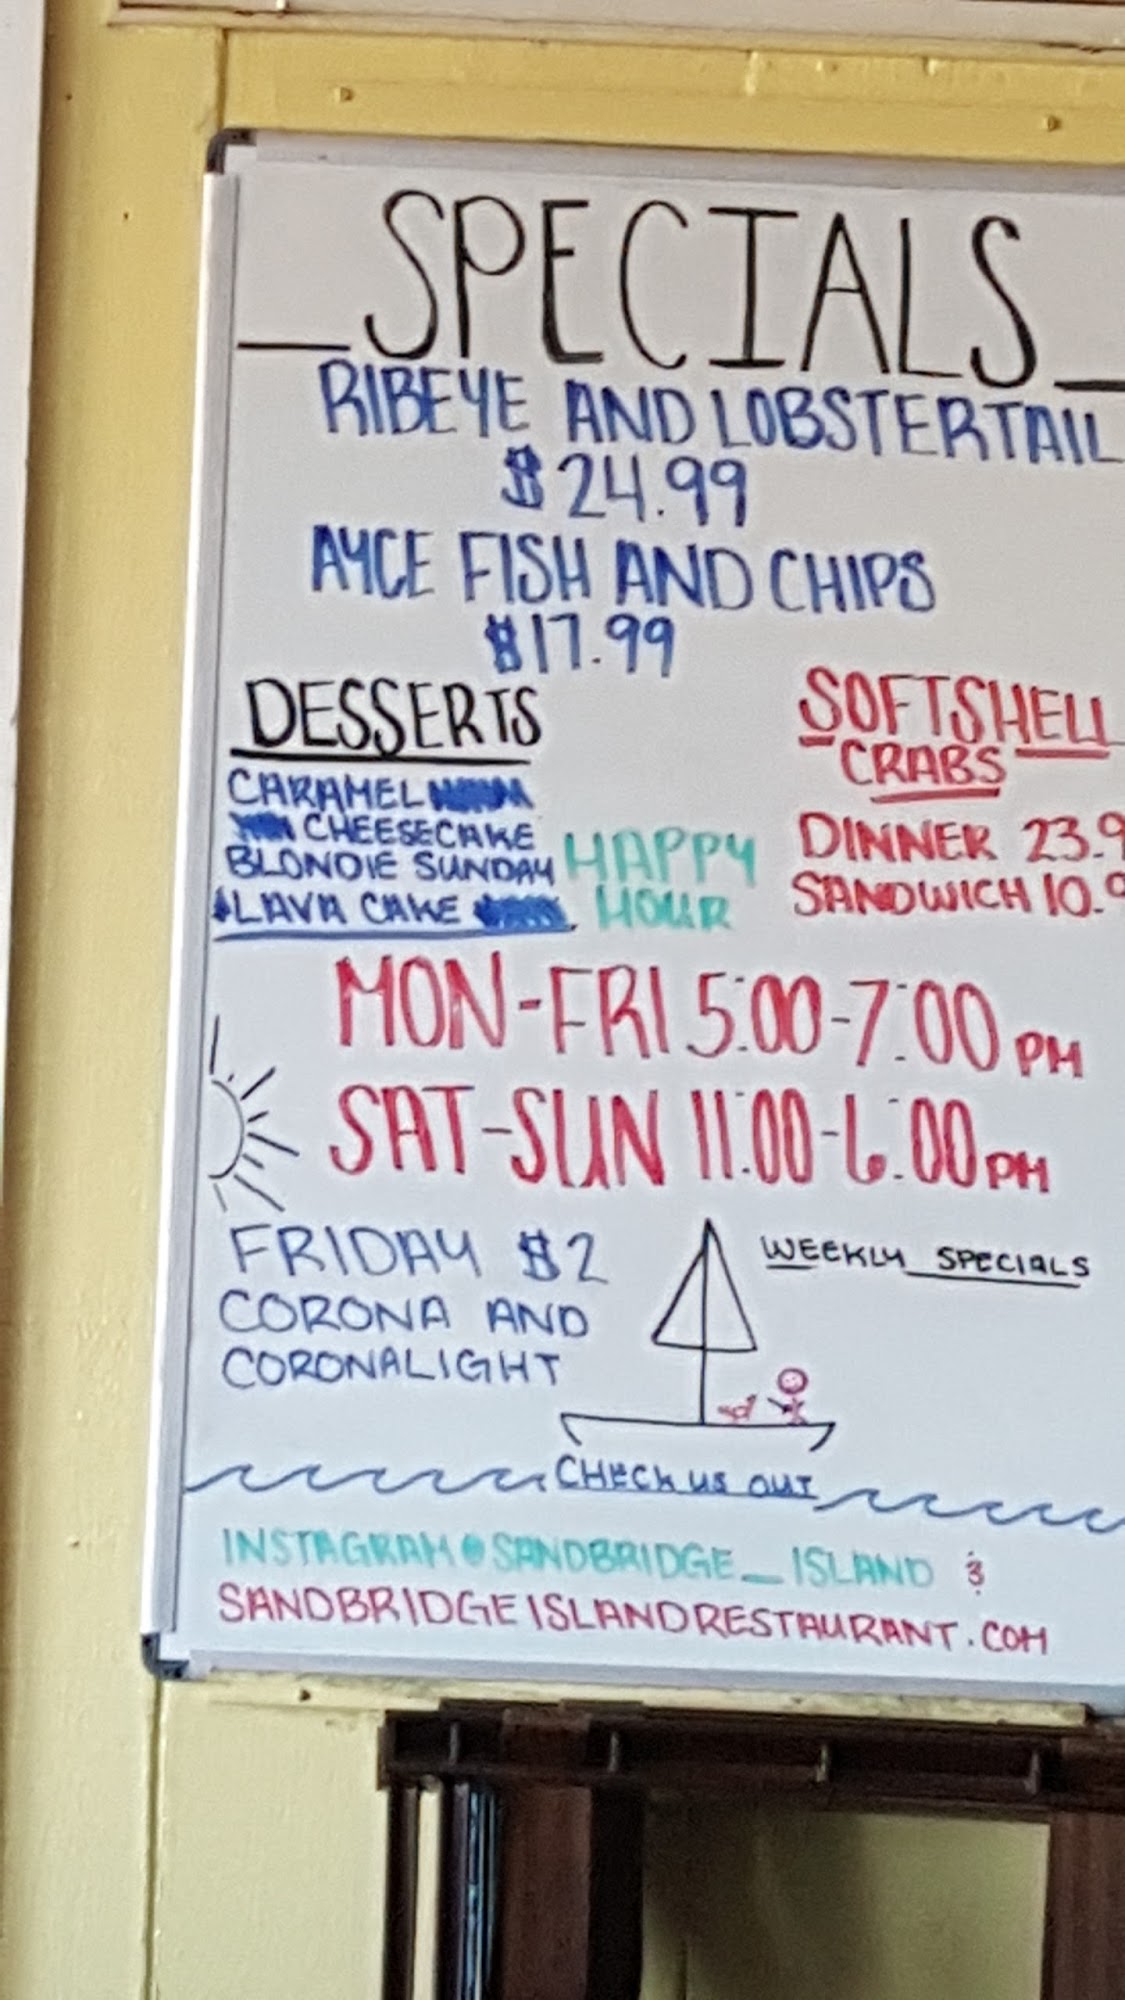 SPECIALS
RIBEYE AND LOBSTERTAIL
$24.99
AYCE FISH AND CHIPS
$17.99
DESSERTS
CARAMEL
CHEESECAKE
BLONDIE SUNDAY
LAVA CAKE
SOFTSHELL
CRABS
DINNER 23.9
SANDWICH 10.9
HAPPY
HOUR
MON-FRI 5:00-7:00 PM
SAT-SUN 11:00-6:00 PM
FRIDAY $2
CORONA AND
CORONALIGHT
WEEKLY SPECIALS
CHECK US OUT
INSTAGRAM@SANDBRIDGE_ISLAND &
SANDBRIDGEISLANDRESTAURANT.COM